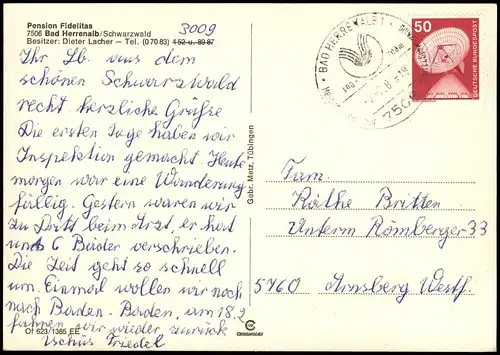 Pension Fidelitas
7506 Bad Herrenalb/Schwarzwald
Besitzer: Dieter Lacher — Tel. (07083) 452 u. 8987
3009
Ihr Lb. aus dem
schönen Schwarzwald
recht herzliche Grüße
Die ersten Tage haben wir
Inspektion gemacht. Heute
morgen war eine Wanderung
fällig. Gestern waren wir
zu Dritt beim Arzt, er hat
uns 6 Bäder verschrieben.
Die Zeit geht so schnell
um. Einmal wollen wir noch
nach Baden-Baden, am 18.2
fahren wir wieder zurück
Tschüs Friedel
Of 623/1365 EE
Gebr. Metz, Tübingen
BAD HERRENALB 1
7506
50
DEUTSCHE BUNDESPOST
Fam.
Käthe Britten
Unterm Römberge 33
5760 Arnsberg Westf.